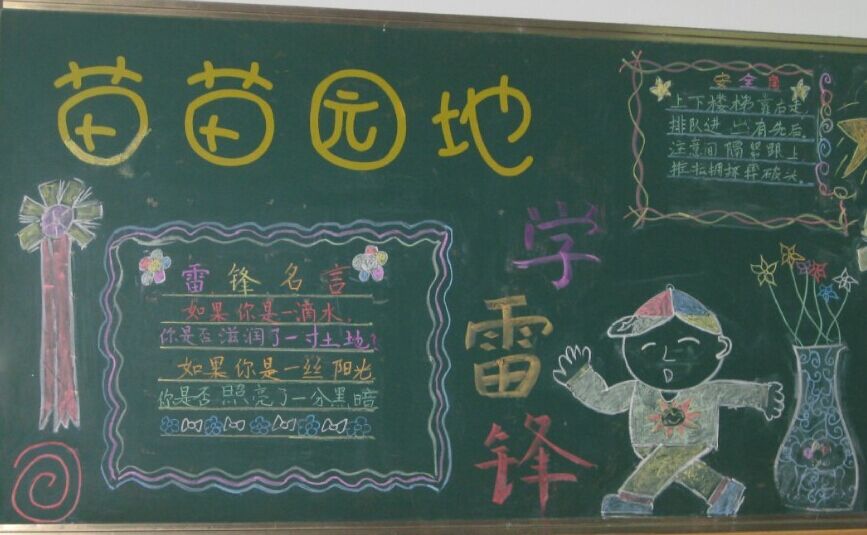 苗苗园地
安全角
上下楼梯靠右走
排队进出有先后
注意间隔紧跟上
推拉拥挤弄破头
学雷锋
雷锋名言
如果你是一滴水，
你是否滋润了一寸土地？
如果你是一丝阳光
你是否照亮了一分黑暗